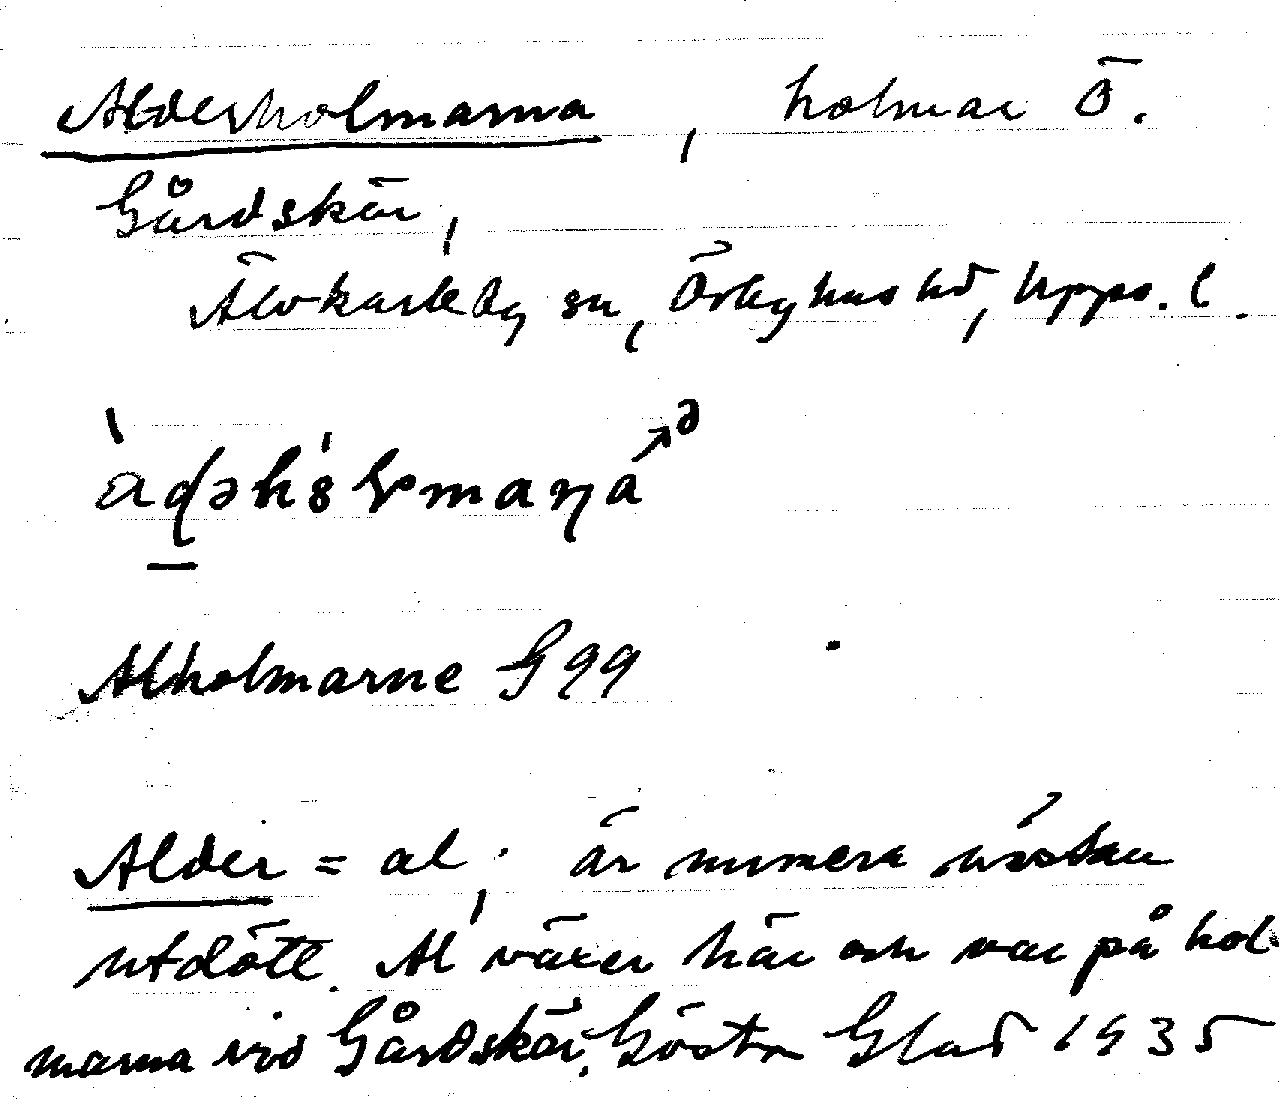 Alderholmarna, holmar Ö.
Gårdskär,
Älvkarleby sn, Örbyhus hd, Upps. l.
Alholmarne G 99
Alder = al; är numera nästan
utdött. Al växer här och var på hol-
marna vid Gårdskär. Gösta Glad 1935